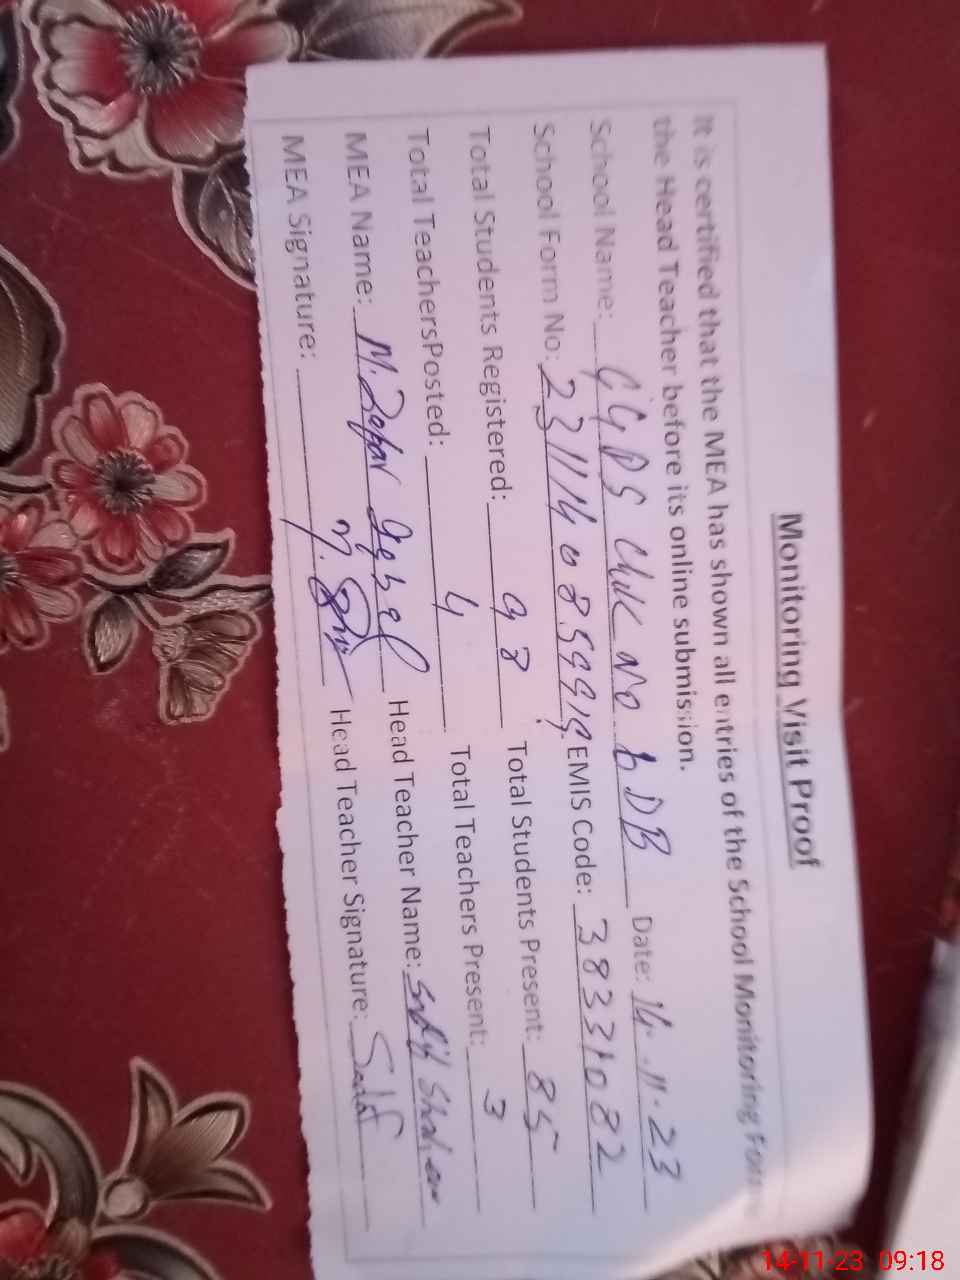 Monitoring Visit Proof
It is certified that the MEA has shown all entries of the School Monitoring Form
the Head Teacher before its online submission.
School Name: GGPS Chk No 6 DB Date: 14.11.23
School Form No: EMIS Code: 38331082
Total Students Registered: 98 Total Students Present: 85
Total TeachersPosted: 4 Total Teachers Present: 3
MEA Name: M. Head Teacher Name:
MEA Signature: Head Teacher Signature:
14-11-23 09:18